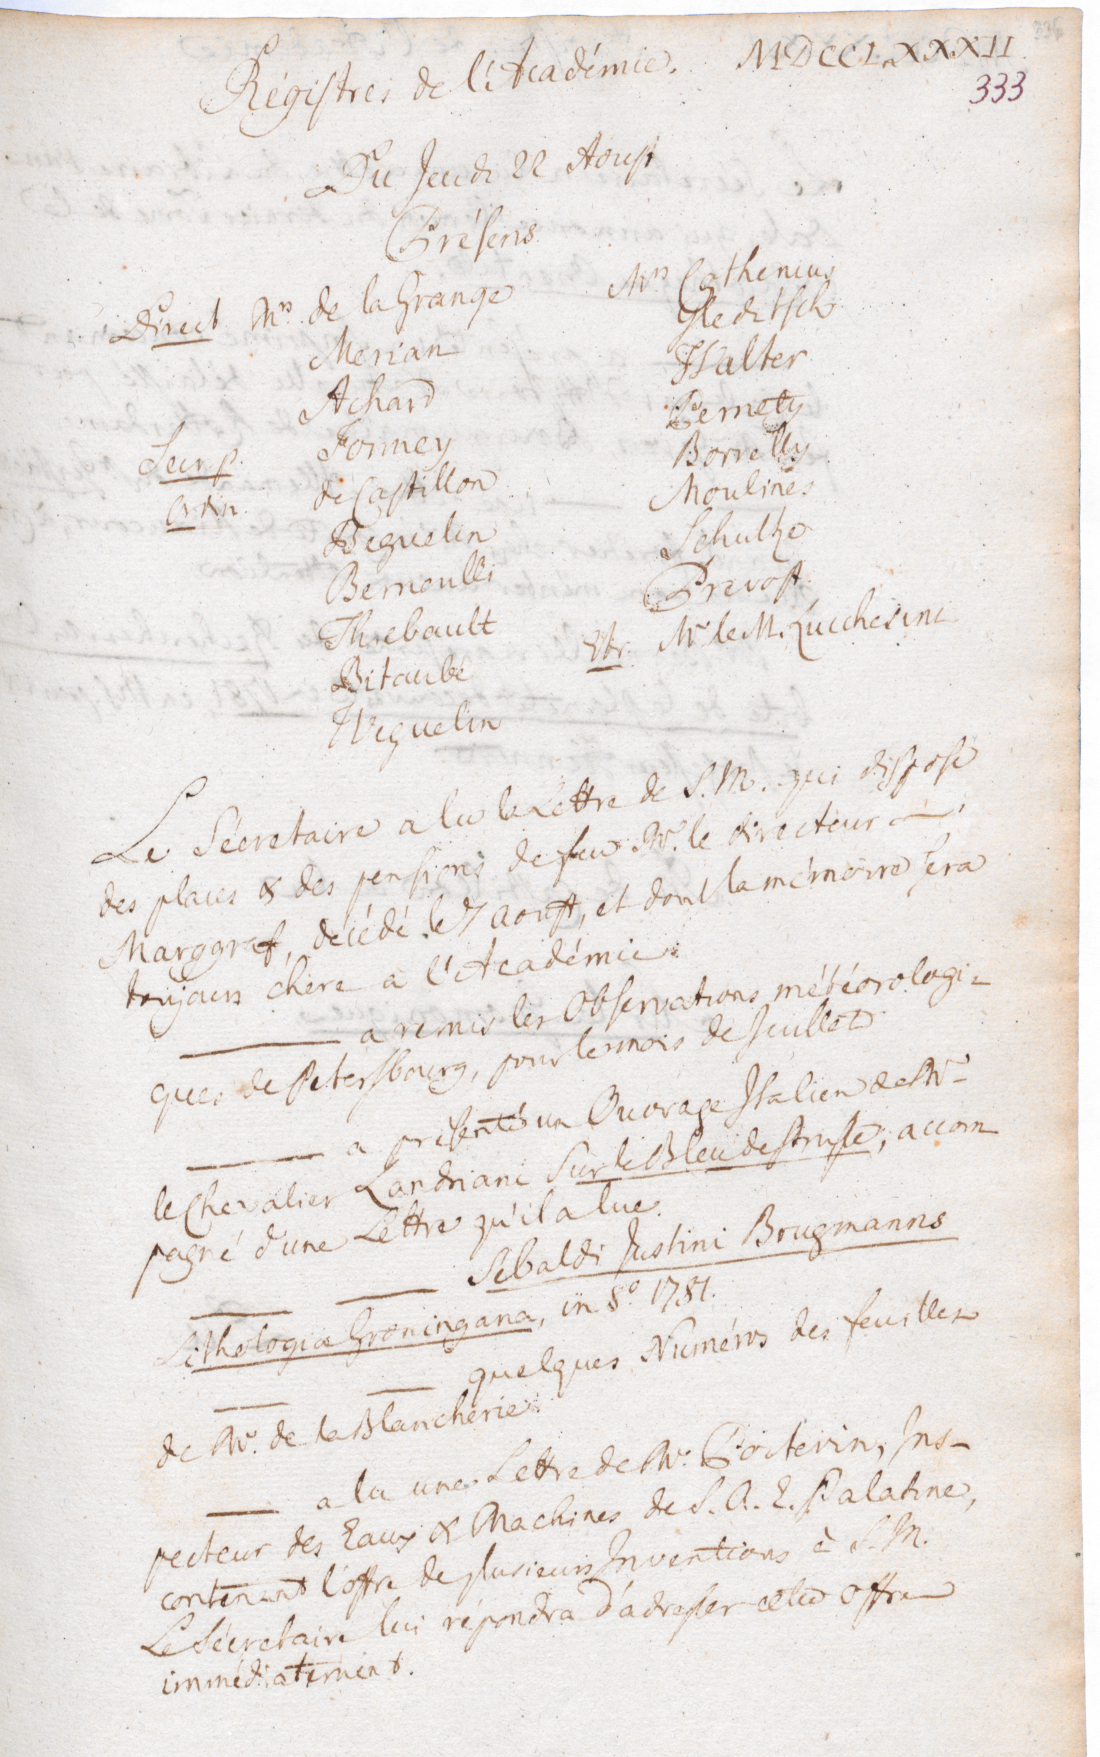 Régistres de l'Académie. MDCCLXXXII
333
Du Jeudi 22 Aoust
Présens
Direct Mrs de la Grange
Merian
Achard
Secr. p. Formey
de Castillon
Beguelin
Bernoulli
Thiebault
Bitaubé
Weguelin
Mrs Cothenius
Gleditsch
Walter
Pernety
Borrelly
Moulines
Schulze
Prevost
Mr le M. Lucchesini
Le Sécretaire a lu la Lettre de S. M. qui dispose
des places & des pensions de feu Mr. le directeur
Marggraf, décédé le 7 Aoust, et dont la mémoire sera
toujours chère à l'Académie.
——— a remis les Observations météorologi-
ques de Petersbourg, pour le mois de Juillet
——— a présenté un Ouvrage Italien de Mr
le Chevalier Landriani Sur le Bleu de Prusse, accom
pagné d'une Lettre qu'il a lue.
—— —— Sebaldi Justini Brugmanns
Lithologia Groningana, in 8o. 1781.
—— —— quelques Numéros des feuilles
de Mr. de la Blancherie.
—— a lu une Lettre de Mr. Poitevin, Ins-
pecteur des Eaux & Machines de S. A. E. Palatine,
contenant l'offre de plusieurs Inventions à S. M.
Le Sécretaire lui répondra d'adresser cette offre
immédiatement.